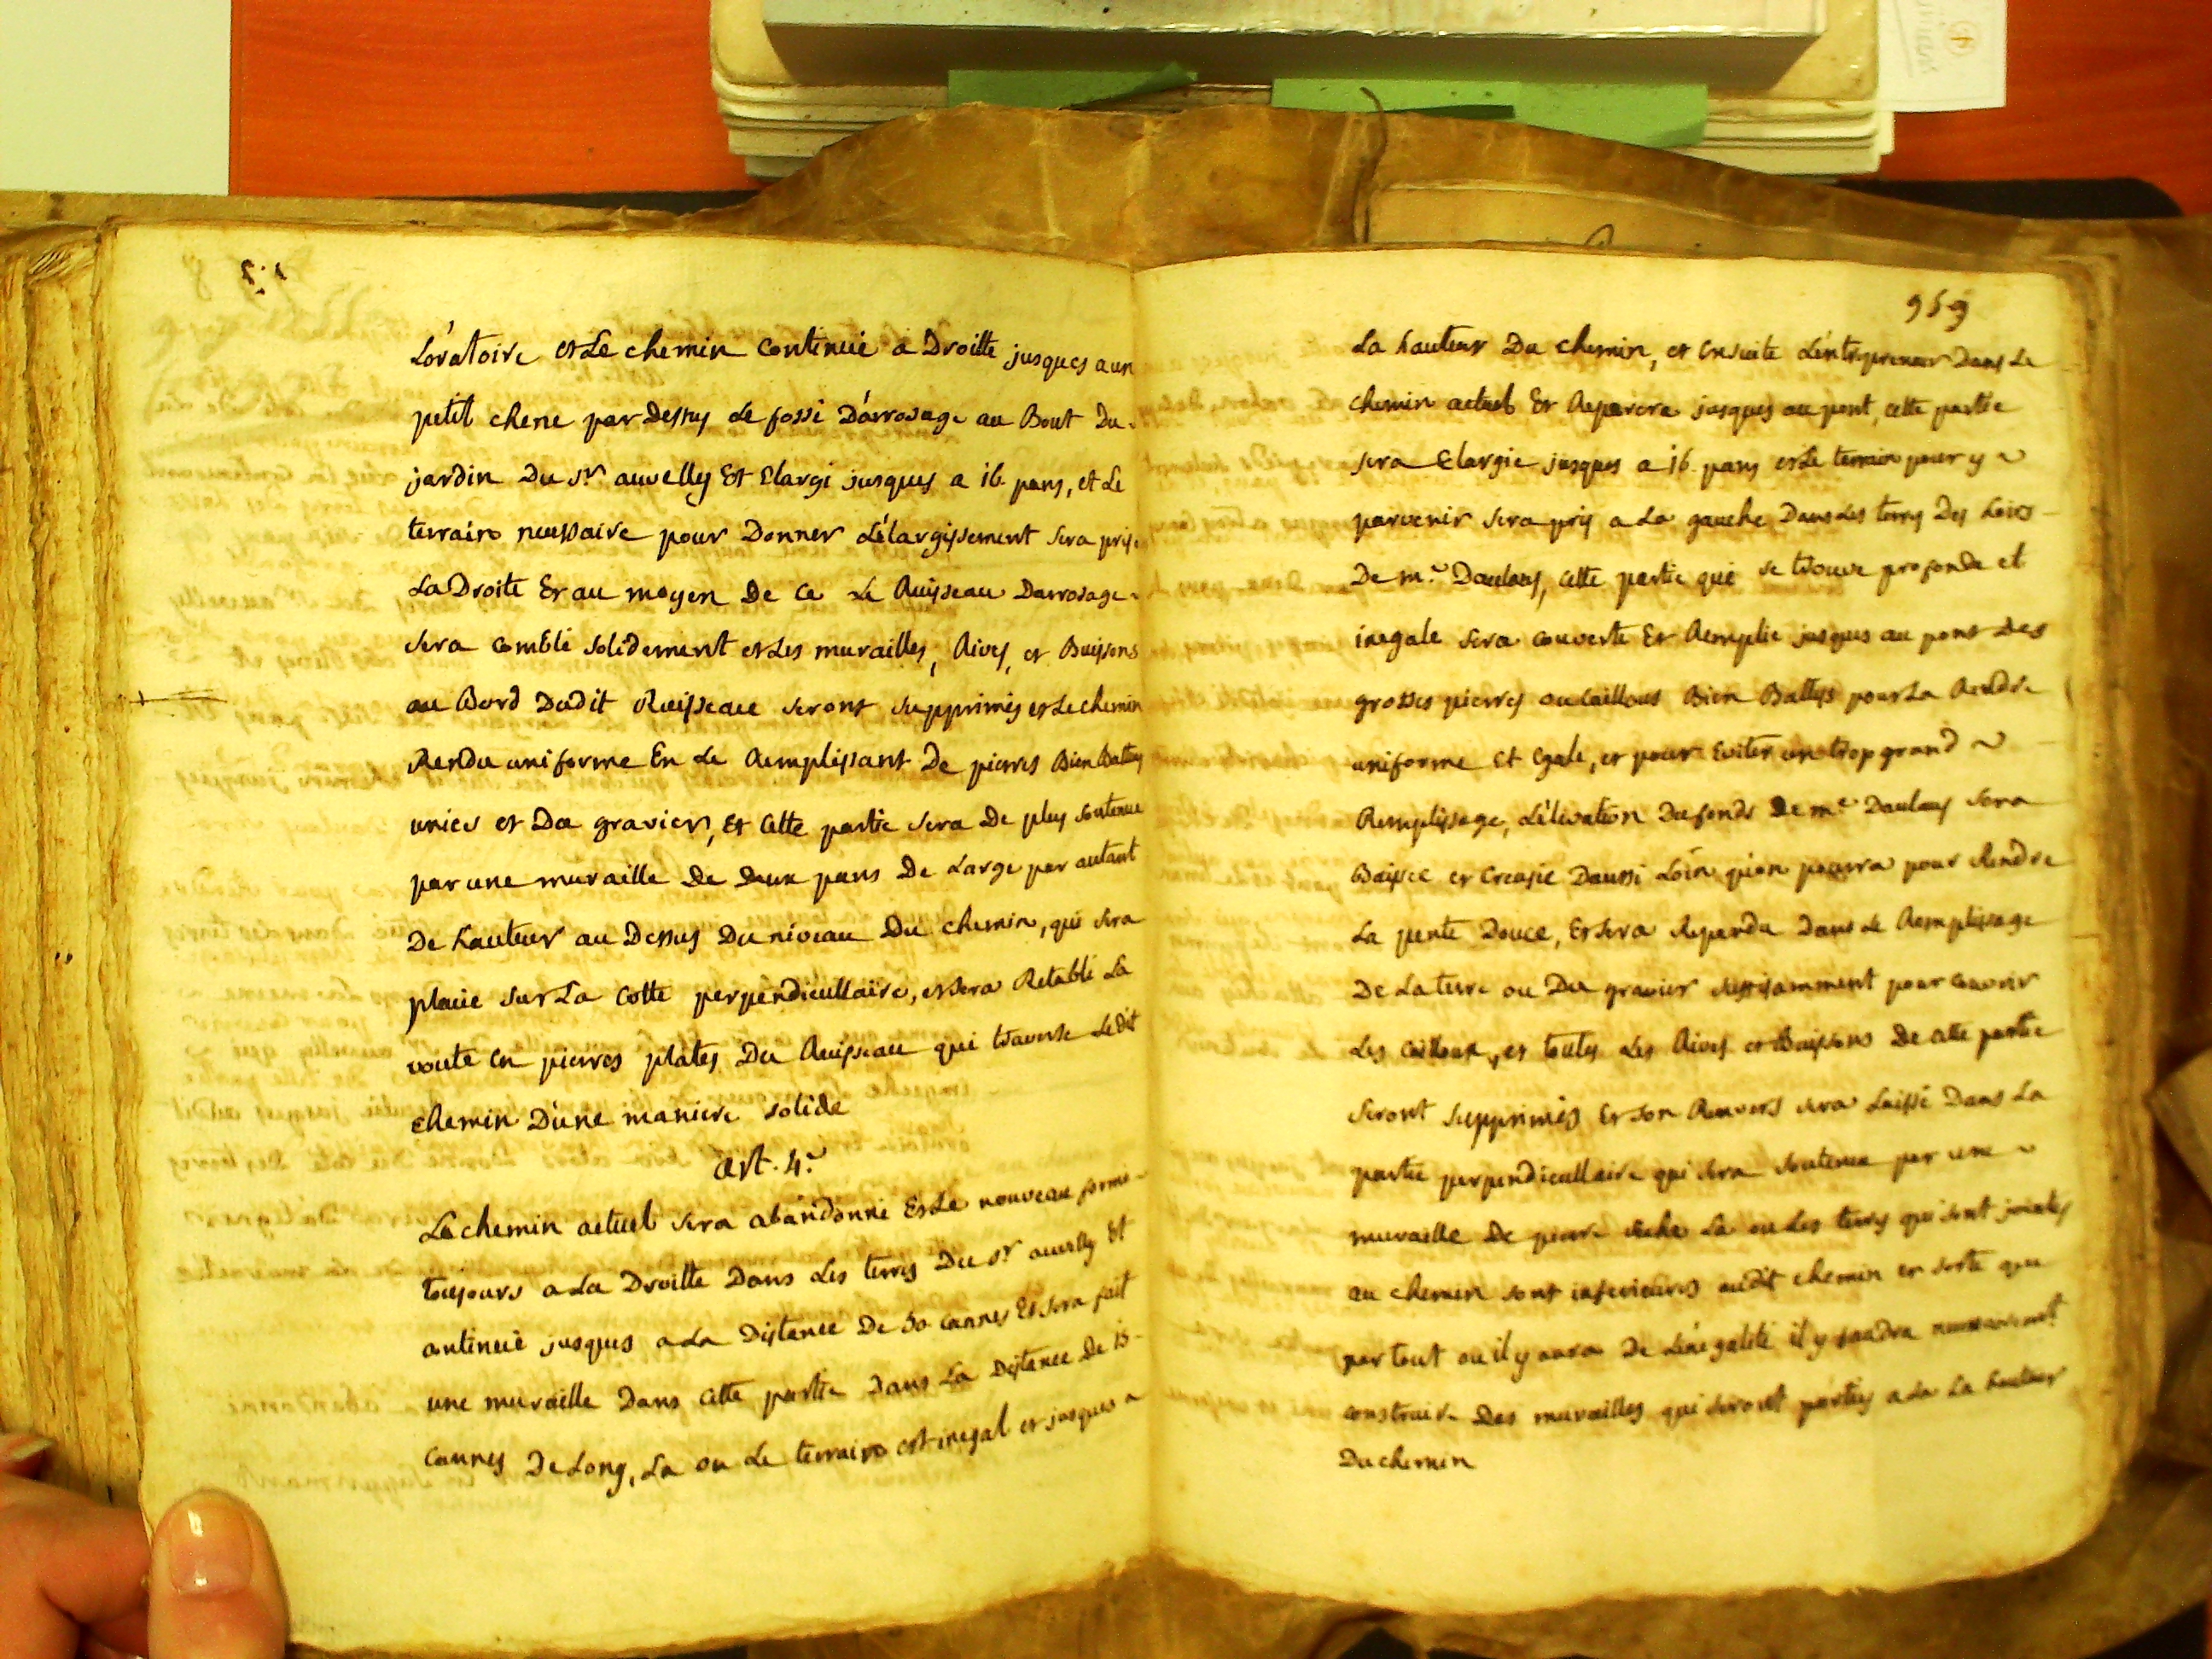 L'oratoire et Le chemin continué a Droitte jusques a un
petit chene par Dessus Le fossé D'arrosage au Bout Du
jardin Du Sr auvelly Et Elargi jusques a 16 pans, et Le
terrain necessaire pour Donner L'élargissement sera pris
La Droite Et au moyen De ce Le Ruisseau Darrosage
sera comblé solidement et Les murailles, Rives, et Buissons
au Bord Dudit Ruisseau seront supprimés et Le chemin
Rendu uniforme En Le Remplissant De pierres Bien Battues
unies et Du gravier, Et Cette partie sera De plus soutenue
par une muraille De Deux pans De Large par autant
De hauteur au Dessus Du niveau Du chemin, qui sera
placée sur La Cotte perpendicullaire, et sera Retabli La
voute en pierres plates Du Ruisseau qui traverse Ledit
chemin D'une maniere solide
art. 4.e
Le chemin actuel sera abandonné Et Le nouveau formé
toujours a La Droitte Dans Les terres Du Sr auvelly Et
continué jusques a La Distance De 50 cannes Et sera fait
une muraille Dans Cette partie Dans La Distance De 15
cannes De Long, La ou Le terrain est inegal et jusques a
959
La hauteur Du chemin, et Ensuite L'entrepreneur Dans Le
chemin actuel Et Reparera jusques au pont, cette partie
sera Elargie jusques a 16 pans et Le terrain pour y
parvenir sera pris a La gauche Dans Les terres Des hoirs
De m.e Daulans, Cette partie qui se trouve profonde et
inegale sera couverte Et Remplie jusques au pont Des
grosses pierres ou Caillous Bien Battus pour La Rendre
uniforme Et Egale, et pour Eviter un trop grand
Remplissage, L'élévation Du fonds De m.e Daulans sera
Baissée et Creusée D'aussi Loin qu'on pourra pour Rendre
La pente Douce, Et sera Repandu Dans Le Remplissage
De La terre ou Du gravier suffisamment pour couvrir
Les Cailloux, et toutes Les Rives et Buissons De cette partie
seront supprimés Et son Renvers sera Laissé Dans La
partie perpendicullaire qui sera soutenue par une
muraille De pierre seche La ou Les terres qui sont jointes
au chemin sont inferieures audit chemin en sorte que
par tout ou il y aura De L'inégalité il y faudra necessairement
construire Des murailles qui seront portées a La La hauteur
Du chemin